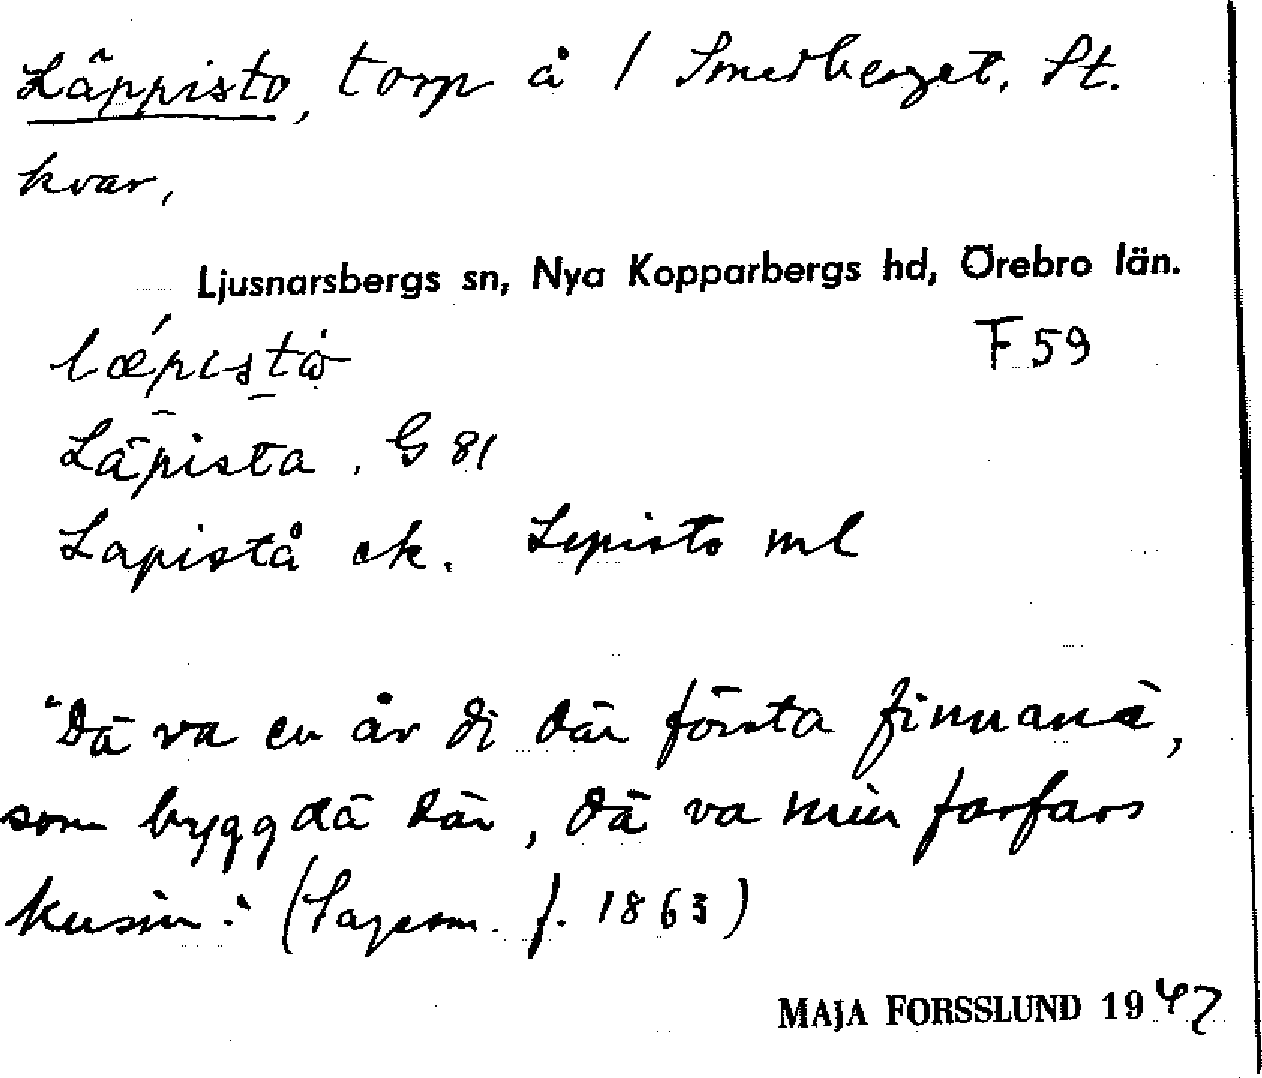 Läppisto, torp å 1 Smedberget. St.
kvar,
Ljusnarsbergs sn, Nya Kopparbergs hd, Örebro län.
lǽpistå F 59
Läpista. G 81
Lapistå ek. Lepisto ml
"Dä va en åv di där första finnanä,
som byggdä där, dä va min farfars
kusin." (Sagesm. f. 1863)
MAJA FORSSLUND 1947